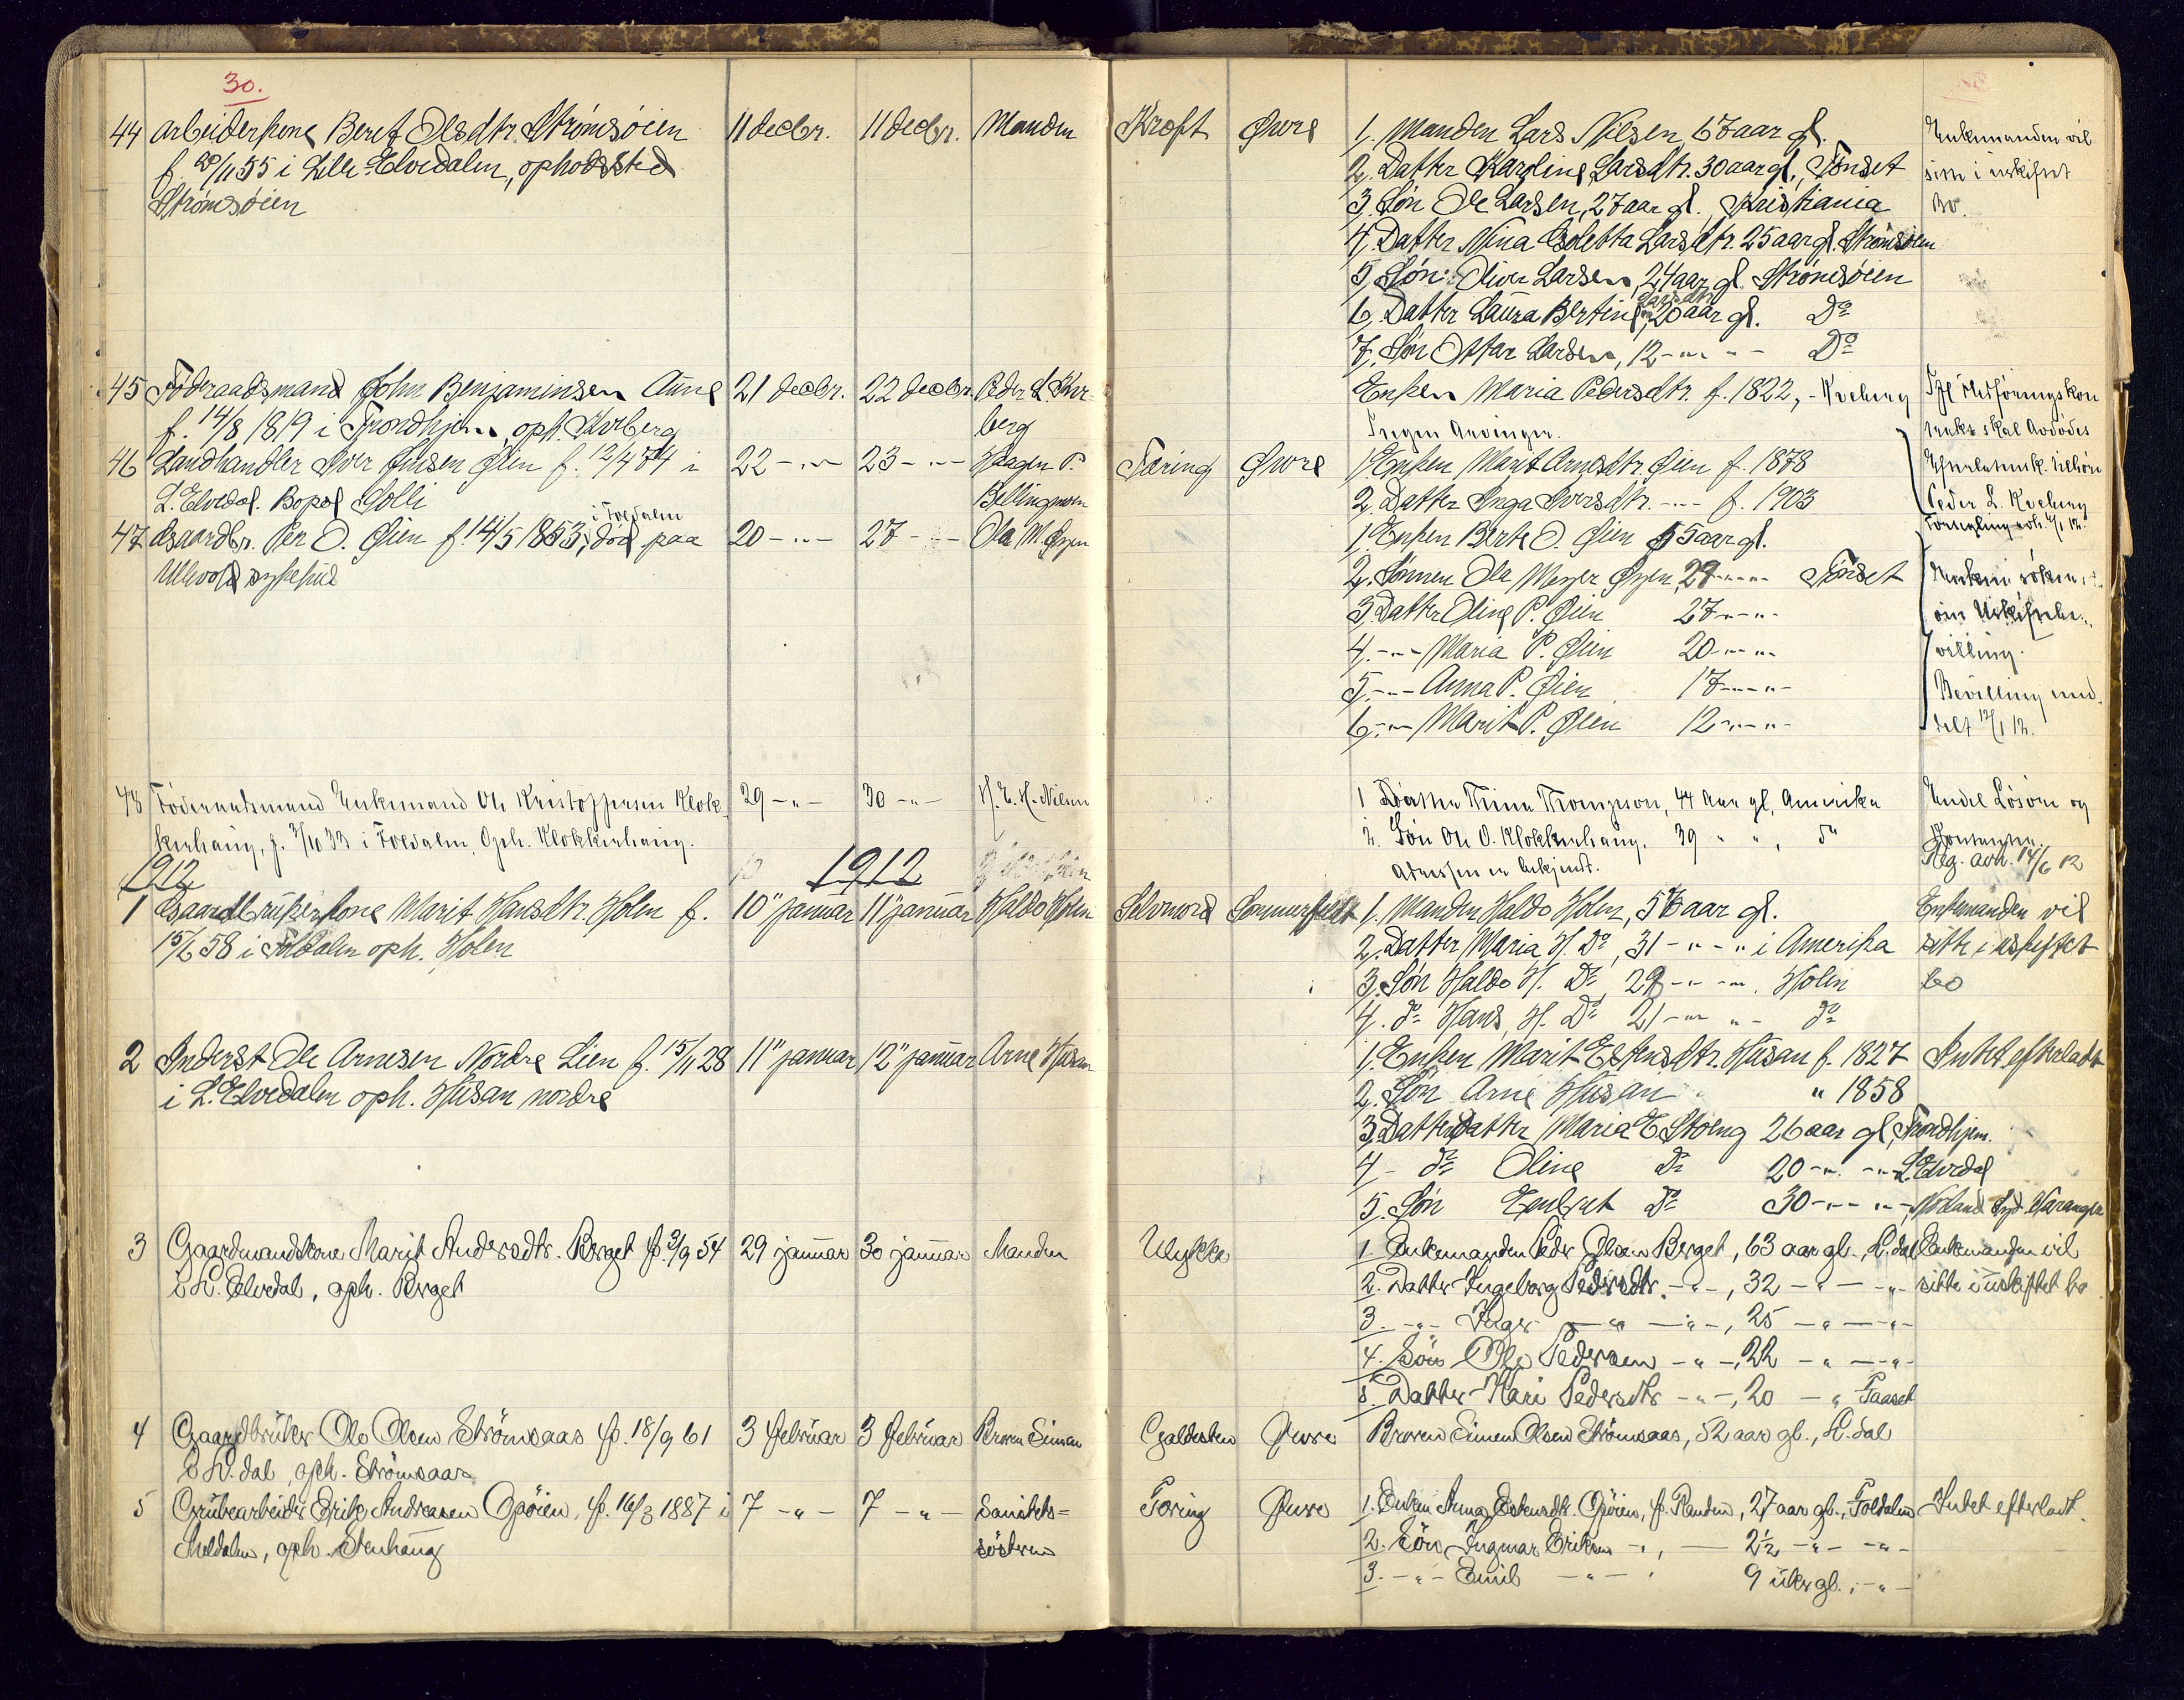 30.
44 Arbeiderkone Beret Olsdtr. Strømsøien 11 decbr. 11 decbr. Manden Kræft Øwre 1. Manden Lars Nilsen, 67 aar gl. Enkemanden vil
f. 20/11 55 i Lille-Elvedalen, opholdssted 2. Datter Karoline Larsdtr. 30 aar gl., Tønset sitte i uskiftet
Strømsøien 3. Søn Ole Larsen, 27 aar gl., Kristiania bo.
4. Datter Nina Larsdtr. 25 aar gl. Strømsøien
5. Søn Oliver Larsen, 24 aar gl. Strømsøien
Larsdtr.
6. Datter Laura Bertine, 20 aar gl. Do
7. Søn Ottar Larsen, 12 -"- "- Do
45 Føderaadsmand John Benjaminsen Aune 21 decbr. 22 decbr. Peder L. Kve- Enken Maria Pedersdtr. f. 1822, - Kveberg
f. 14/8 1819 i Trondhjem, oph. Kveberg berg Ingen Arvinger. skal Avdødes
46 Landhandler Iver Øien f. 12/4 74 i 22 -"- 23 -"- Haagen P. Tæring Øwre 1. Enken Marit Arnesdtr. Øien f. 1878
L. Elvedal. Bopæl Solli Bellingmoen 2. Datter Inga Iversdtr. -"- f. 1903 Peder L. Kveberg
i Foldalen
47 Gaardbr. Per O. Øien f. 14/5 1853, død paa 20 -"- 27 -"- Ola M. Øyen 1. Enken Berte O. Øien 55 aar gl.
Ullevold sykehus 2. Sønnen Ola Meyer Øyen, 29 -"- Tønset
3. Datter Oline P. Øien 27 -"- Uskiftebe-
4. -"- Maria P. Øien 20 -"- villing.
5. -"- Anna P. Øien 17 -"- Bevilling med-
6. -"- Marit P. Øien 12 -"- delt 12/1 12.
48 Føderaadsmand Enkemand Ole Kristoffersen Klok- 29 -"- 30 -"- H. E. H. Nilsen 1 Datter Trina Thompson, 44 aar gl., Amerika Endel Løsøre og
kerhaug, f. 3/10 33 i Foldalen, Oph. Klokkerhaug. 2. Søn Ole O. Klokkerhaug. 39 " ", do
Adressen er ubekjendt. 14/6 12
1912 1912
1 Gaardbrukerkone Marit Hansdtr. Holen f. 10" januar 11" januar Haldo Holen Selvmord Sommerfeldt 1. Manden Haldo Holen, 56 aar gl. Enkemanden vil
15/2 58 i Foldalen oph. Holen 2. Datter Maria H. Do, 31 -"- " i Amerika sitte i uskiftet
3. Søn Haldo H. Do 29 -"- , Holen bo
4. do Hans H. Do 21 -"- "- do
2 Inderst Ole Arnesen Nordre Lien f. 15/11 28 11" januar 12" januar Arne Husan 1. Enken Marit Estensdtr. Husan f. 1827 Intet efterladt
i L. Elvedalen oph. Husan nordre 2. Søn Arne Husan " 1858
3. Datterdatter Maria E Støeng 26 aar gl, Trondhjem.
4 - do Oline Do 20 -"- "- L. Elvedal
5. Søn Embret Do 30 -"- "- Syd-Varanger
3 Gaardmandskone Marit Andersdtr. Berget f. 3/9 54 29 januar 30 januar Manden Ulykke 1. Enkemanden Peder Olsen Berget, 63 aar gl., L.dal Enkemanden vil
i L. Elvedal, oph. Berget 2. Datter Ingeborg Pedersdtr. -"-, 32 -"- -"- sitte i uskiftet bo
3. -"- Inger -"- -"-, 25 -"- -"-
4. Søn Ole Pedersen -"-, 22 -"- -"-
5. Datter Kari Pedersdtr -"-, 20 -"- Faaset
4 Gaardbruker Ole Olsen Strömsaas f. 18/9 61 3 februar 3 februar Broren Simen Galdesten Øwre Broren Simen Olsen Strömsaas, 52 aar gl., L.dal
i L.dal, oph. Strömsaas
5 Grubearbeider Erik Andreasen Opøien, f. 16/3 1887 i 7 -"- 7 -"- Sanitets= Tæring Øwre 1. Enken Anna Estensdtr. Opøien, f. Randen, 27 aar gl., Foldalen Intet efterladt.
Meldalen, oph. Stenhaug søsteren 2. Søn Ingmar Eriksen -"-, - 2½ -"- -"-
3. -"- Emil -"- - 9 uker gl., -"-